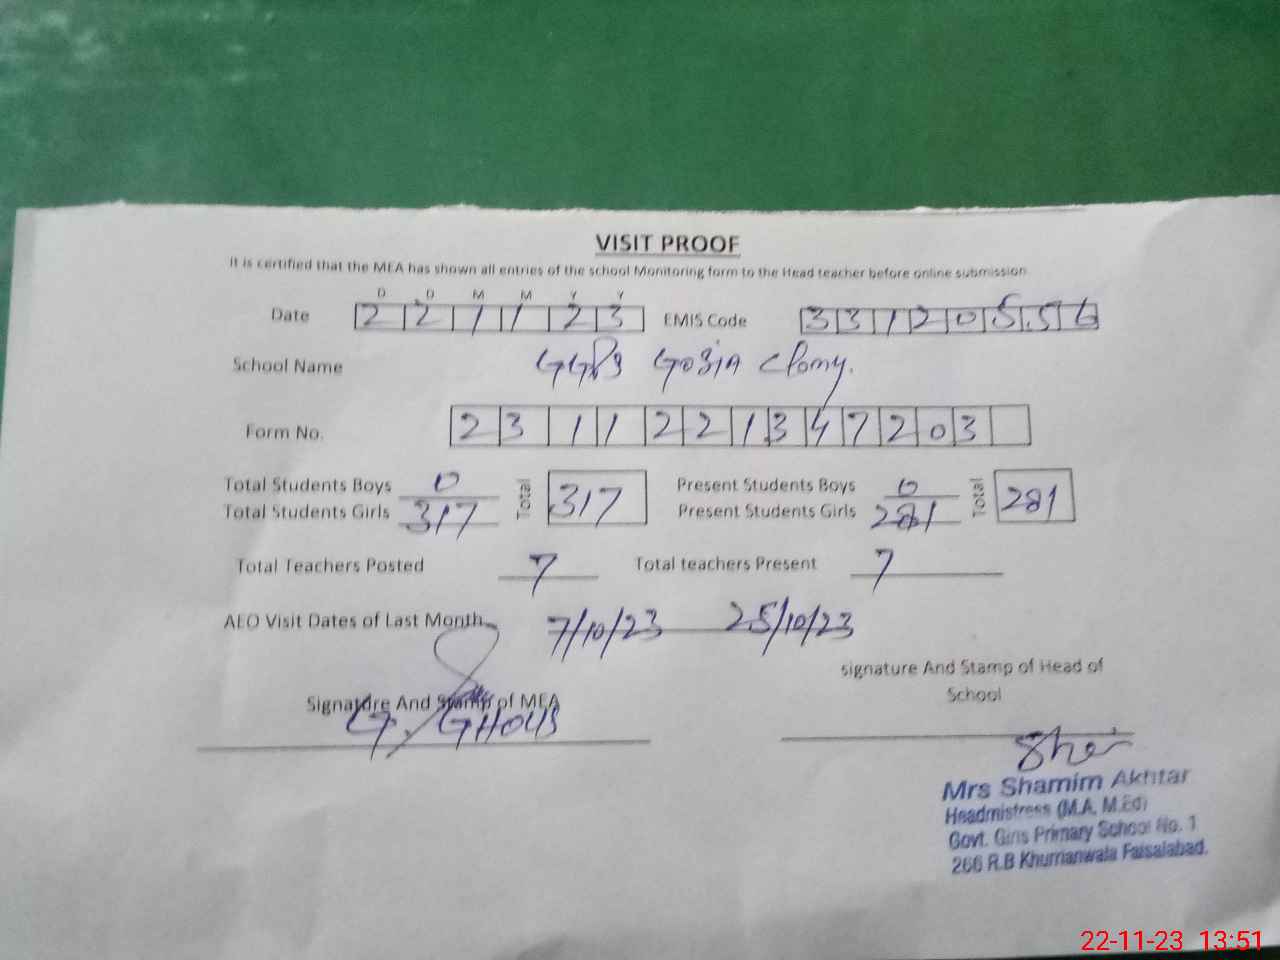 VISIT PROOF
It is certified that the MEA has shown all entries of the school Monitoring form to the Head teacher before online submission
D D M M Y Y
Date 2 2 1 1 2 3 EMIS Code 3 3 1 2 0 5 5 6
School Name GGPS GOSIA Clomy.
Form No. 2 3 1 1 2 2 1 3 4 7 2 0 3
Total Students Boys 0 Total 317 Present Students Boys 0 Total 281
Total Students Girls 317 Present Students Girls 281
Total Teachers Posted 7 Total teachers Present 7
AEO Visit Dates of Last Month 7/10/23 25/10/23
signature And Stamp of Head of
School
Signature And Stamp of MEA
G. GHOUS
Mrs Shamim Akhtar
Headmistress (M.A, M.Ed)
Govt. Girls Primary School No. 1
266 R.B Khurrianwala Faisalabad.
22-11-23 13:51